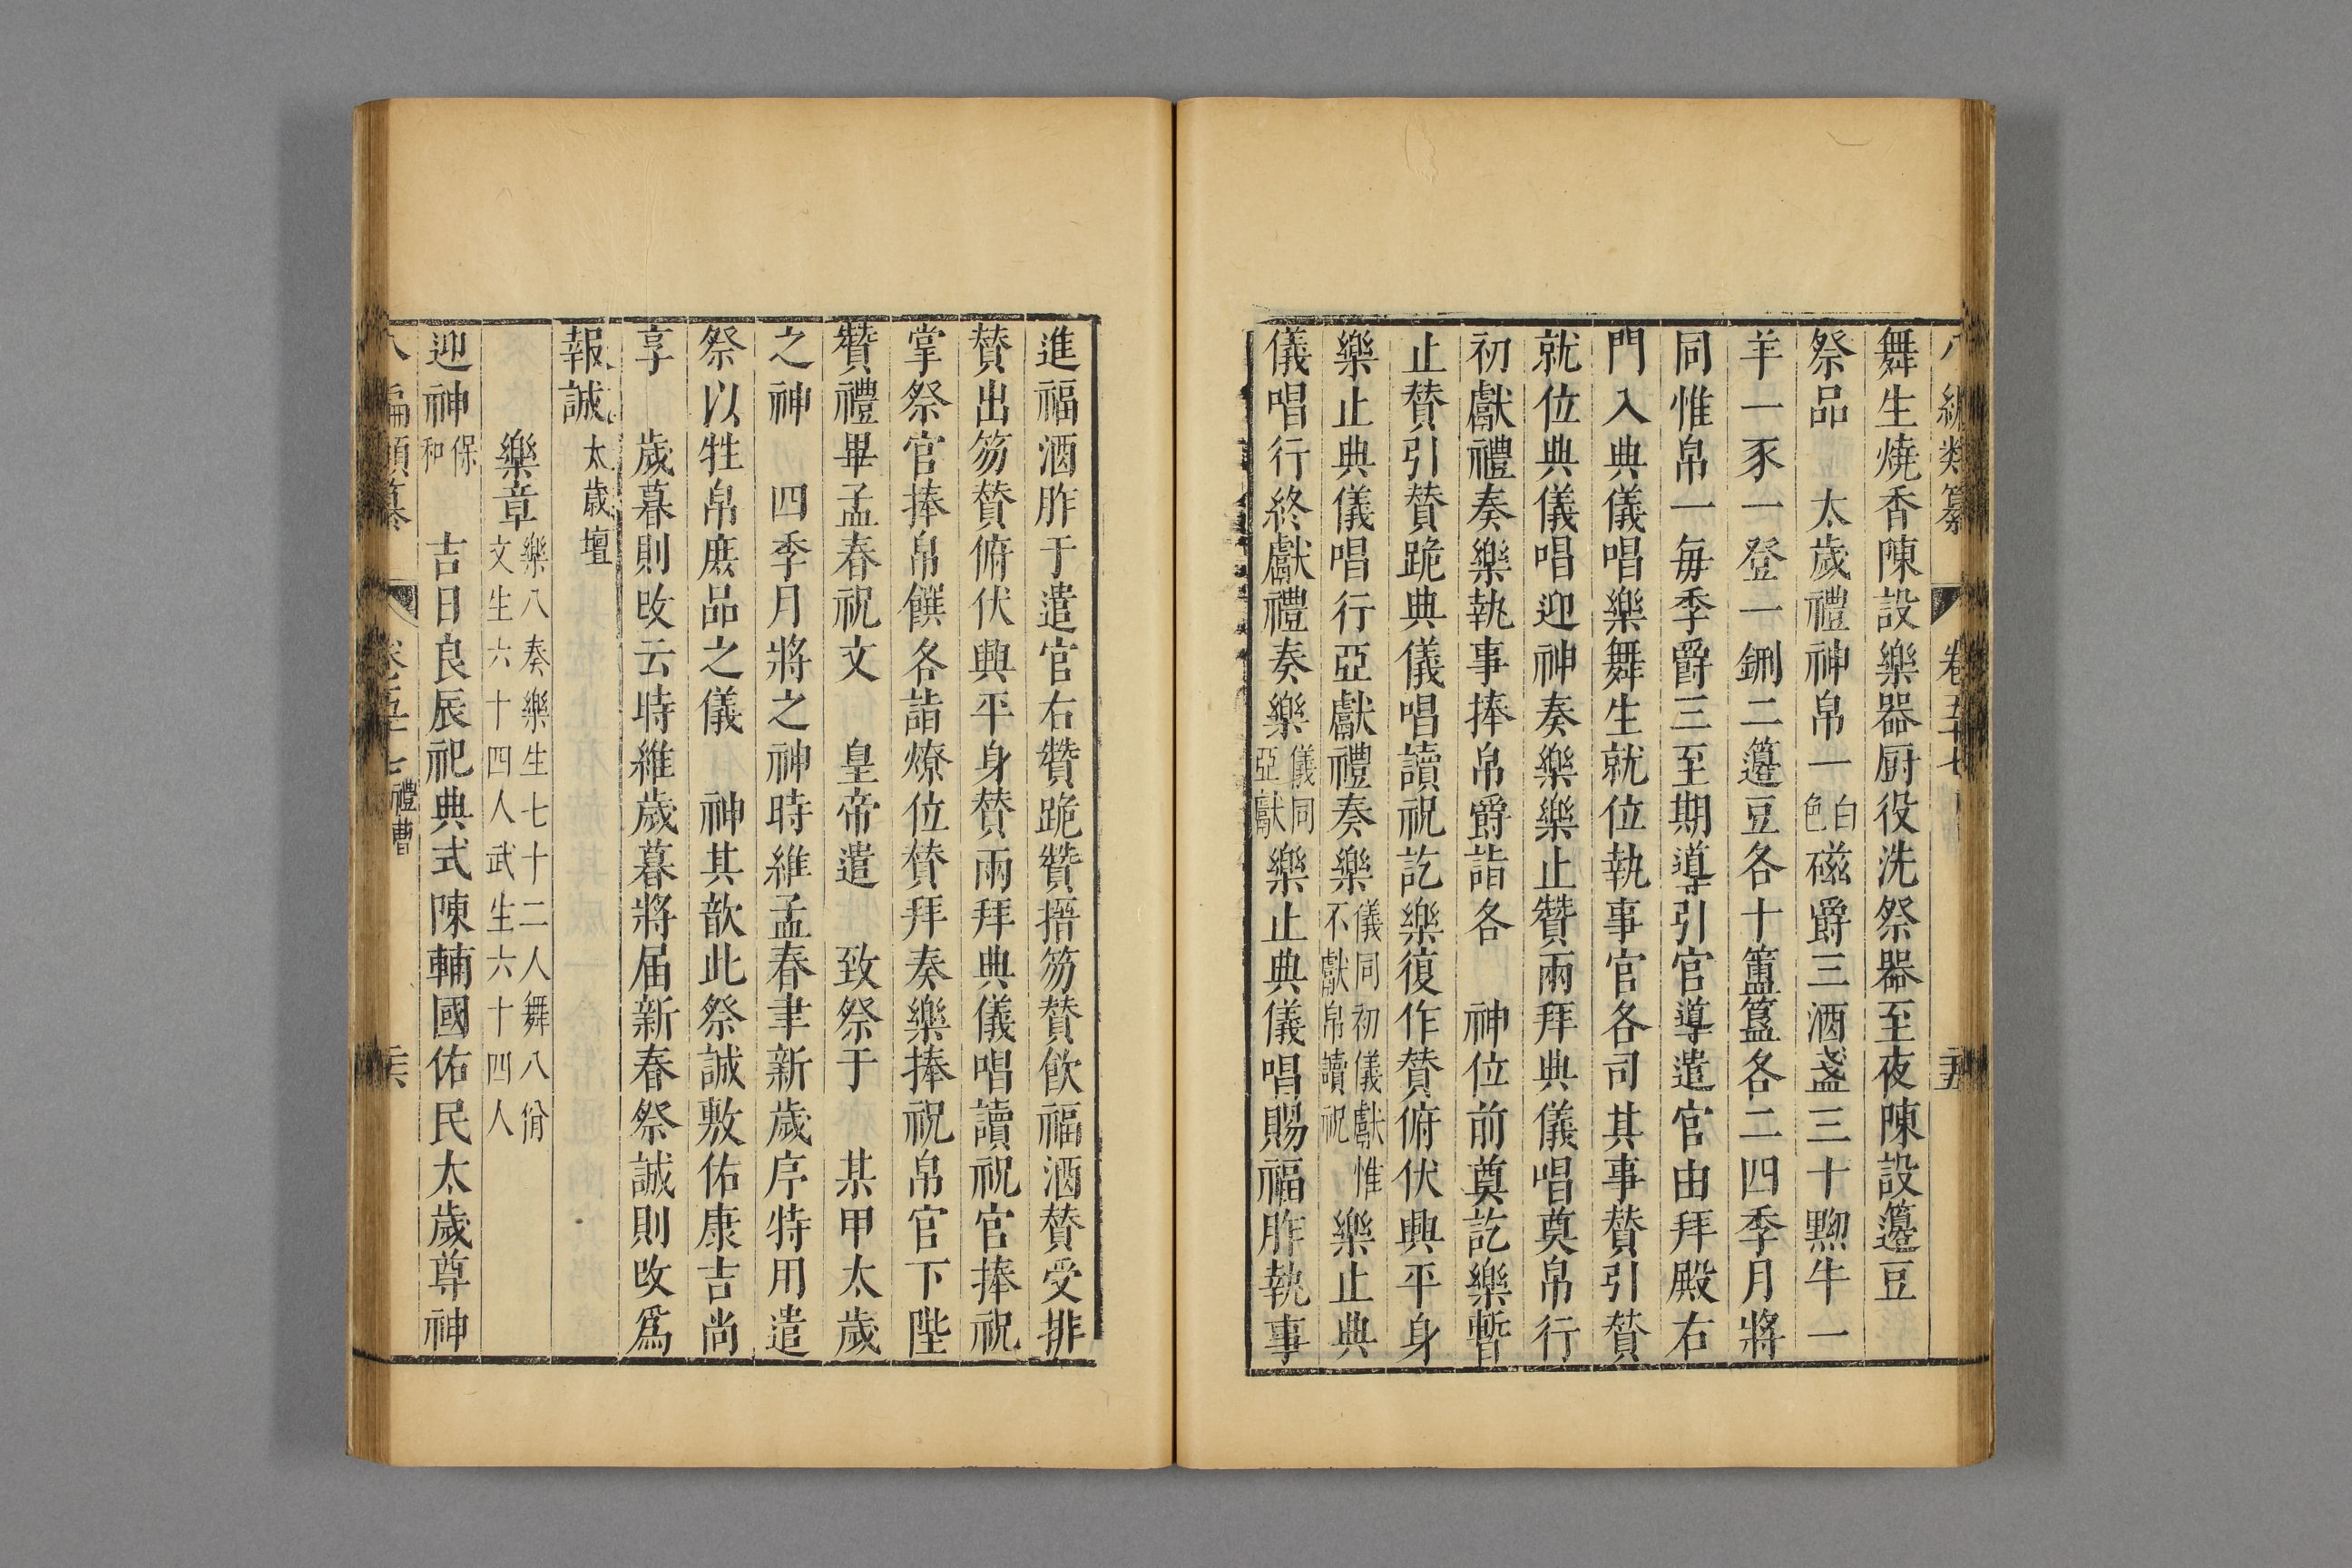 八編類纂 卷五十七 二十五
舞生燒香陳設樂器厨役洗祭器至夜陳設籩豆
祭品 太歲禮神帛一白色磁爵三酒盞三十㸃牛一
羊一豕一登一鉶二籩豆各十簠簋各二四季月將
同惟帛一毎季爵三至期導引官導遣官由拜殿右
門入典儀唱樂舞生就位執事官各司其事賛引賛
就位典儀唱迎神奏樂樂止贊兩拜典儀唱奠帛行
初獻禮奏樂執事捧帛爵詣各 神位前奠訖樂暫
止賛引賛跪典儀唱讀祝訖樂復作賛俯伏興平身
樂止典儀唱行亞獻禮奏樂儀同初儀獻惟不獻帛讀祝樂止典
儀唱行終獻禮奏樂儀同亞獻樂止典儀唱賜福胙執事
進福酒胙于遣官右贊跪贊搢笏賛飲福酒賛受胙
賛出笏賛俯伏興平身賛兩拜典儀唱讀祝官捧祝
掌祭官捧帛饌各詣燎位賛拜奏樂捧祝帛官下陛
贊禮畢孟春祝文 皇帝遣 致祭于 某甲太歲
之神 四季月將之神時維孟春聿新歲序特用遣
祭以牲帛庶品之儀 神其歆此祭誠敷佑康吉尚
享 歲暮則改云時維歲暮將届新春祭誠則改爲
報誠太歲壇
樂章樂八奏樂生七十二人舞八佾文生六十四人武生六十四人
迎神保和 吉日良辰祀典式陳輔國佑民太歲尊神
八編類纂 卷五十七禮曹 二十六